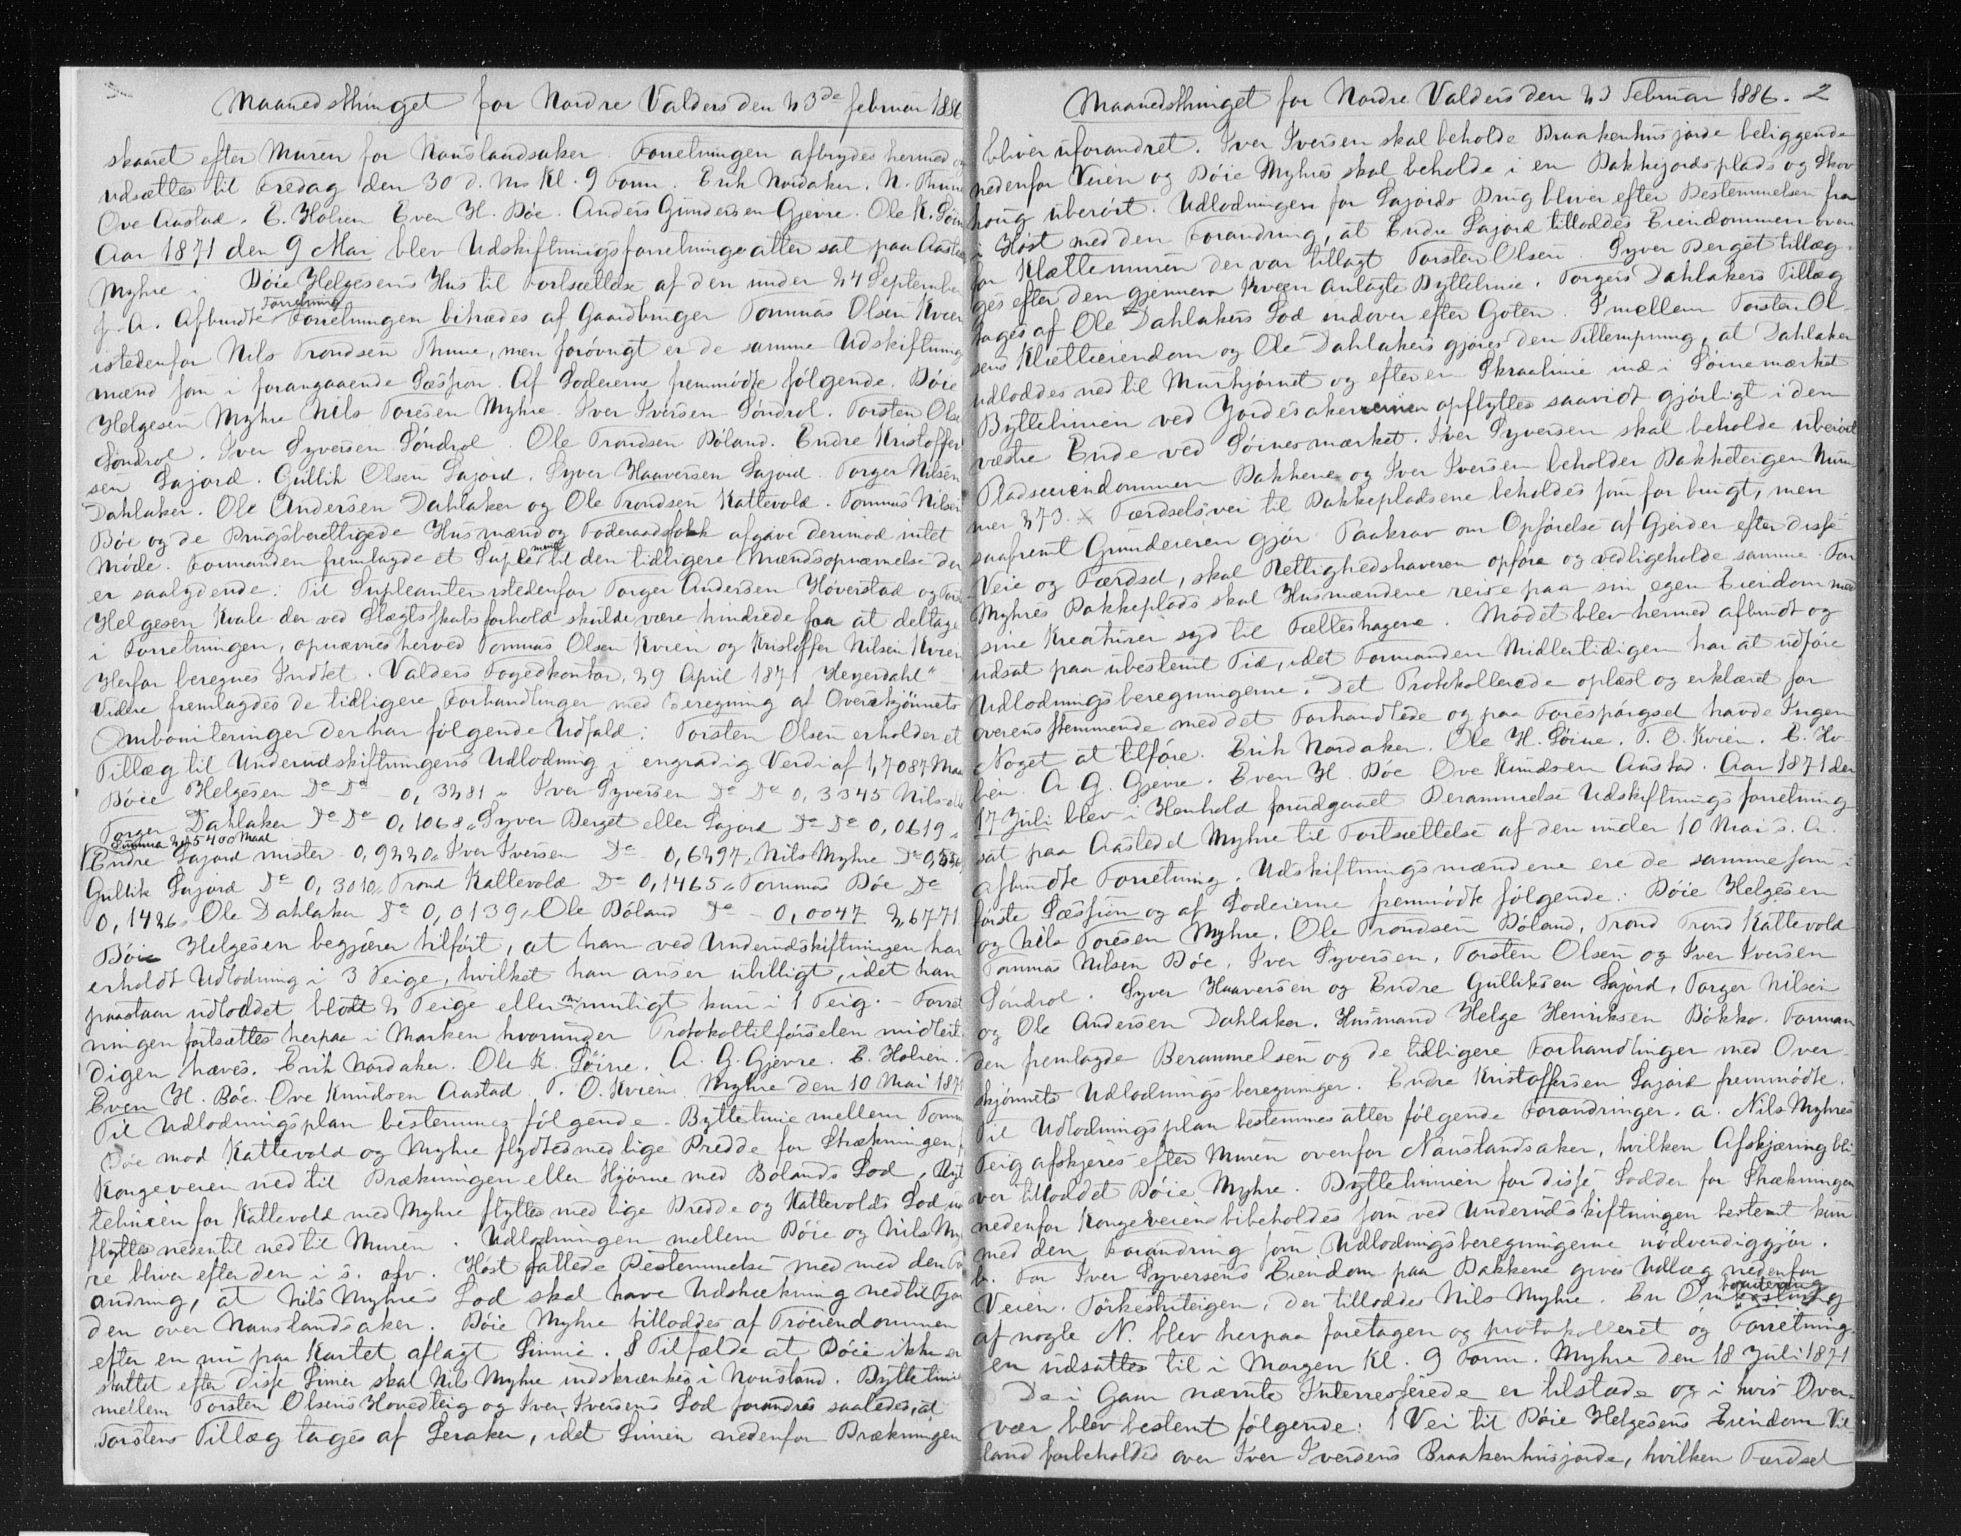 Maanedsthinget for Nordre Valders den 23de februar 1886
skaaret efter Muren for Nauslandsaker. Forretningen afbrydes hermed og
udsættes til Fredag den 30 d. Ms Kl. 9 Form. Erik Nordaker. N. Thune
Ove Aastad. E. Holien Even H. Bøe. Anders Gundersen Gjevre. Ole K. Søine
Aar 1871 den 9 Mai blev Udskiftningsforretninge atter sat paa Aasted
Myhre i Bøie Helgesens Hus til Fortsættelse af den under 24 September
f. A. Afbrudte Forretning Forretningen bitrædes af Gaardbruger Tommas Olsen Kvien
istedenfor Nils Trondsen Thune, men forøvrigt er de samme Udskiftnings
mænd som i forangaaende Sæssjon. Af Lodeierne fremmødte følgende. Bøie
Helgesen Myhre Nils Toresen Myhre. Iver Iversen Søndrol. Torsten Olsen
Søndrol. Iver Syversen Søndrol. Ole Trondsen Bøland. Endre Kristoffer
sen Lajord. Gullik Olsen Lajord. Syver Haaversen Lajord Torger Nilsen
Dahlaker. Ole Andersen Dahlaker og Ole Trondsen Kattevold. Tommas Nilsen
Bøe og de Brugsberettigede Husmænd og Føderaadsfolk afgave derimod intet
Møde. Formanden fremlagde et Suplement til den tidligere Mændsopnævnelse der
er saalydende: Til Supleanter istedenfor Torger Andersen Høverstad og
Helgesen Kvale der ved Slægtskabsforhold skulde være hindrede fra at deltage
i Forretningen, opnævnes herved Tommas Olsen Kvien og Kristoffer Nilsen Kvien
Herfor beregnes Indtet. Valders Fogedkontor, 29 April 1871 Heyerdahl"
Videre fremlagdes de tidligere Forhandlinger med Beregning af Overskjønnets
Omboniteringer der har følgende Udfald: Torsten Olsen erholder et
Tillæg til Underudskiftningens Udlodning i engradig Verdi af 1,7087 Maal
Bøie Helgesen Do Do 0,3281 " Iver Syversen Do Do 0,3345 Nils eller
Torger Dahlaker Do Do 0,1068 " Syver Berget eller Lajord Do Do 0,0619 "
Summa 2,5400 Maal
Endre Lajord mister 0,9220 " Iver Iversen Do 0,6297 " Nils Myhre Do
Gullik Lajord Do 0,3010 " Trond Kattevold Do 0,1465 " Tommas Bøe Do
0,1426 " Ole Dahlaker Do 0,0139 " Ole Bøland Do 0,0047 2,6771
Bøie Helgesen begjærer tilført, at han ved Underudskiftningen har
erholdt Udlodning i 3 Teige, hvilket han anser ubilligt, idet han
paastaar udloddet blodt 2 Teige eller om muligt kun i 1 Teig. - Forret
ningen fortsættes herpaa i Marken hvorunder Protokoltilførselen midlerti
digen hæves. Erik Nordaker. Ole K. Søine. A. G. Gjevre. E. Holien.
Even H. Bøe. Ove Knudsen Aastad. T. O. Kvien. Myhre den 10 Mai 1871
Til Udlodningsplan bestemmes følgende. Byttelinie mellem Tommas
Bøe mod Kattevold og Myhre flydtes med lige Bredde for Strækningen fra
Kongeveien ned til Brækningen eller Hjørne med Bølands Lod, Byt
telinien for Kattevold med Myhre flyttes med lige Bredde og Kattevolds Lod
flyttes nedentil ned til Muren. Udlodningen mellem Bøie og Nils My
re bliver efter den i s. afv. Høst fattede Bestemmelse med med den For
andring, at Nils Myhres Lod skal have Udstrækning ned til Fjor
den over Nauslandsaker. Bøie Myhre tilloddes af Trøeiendommen
efter en nu paa Kartet aflagt Linnie. I Tilfælde at Bøie ikke er
skattet efter disse Linier skal Nils Myhre indskrænkes i Nausland. Byttelinie
mellem Torsten Olsens Hovedteig og Iver Iversens Lod forandres saaledes, at
Torstens Tillæg tages af Leraker, idet Linien nedenfor Brækningen
Maanedsthinget for Nordre Valders den 23 Februar 1886. 2
bliver uforandret. Iver Iversen skal beholde Braakenhusjorde beliggende
nedenfor Veien og Bøie Myhres skal beholde i en Bakkejordsplads og Skov
houg uberørt. Udlodningen for Lajords Brug bliver efter Bestemmelsen fra
i Høst med den Forandring, at Endre Lajord tilloddes Eiendommen oven
for Kletlemuren der var tillagt Torsten Olsen. Syver Berget tillæg
ges efter den gjennem Kveen anlagte Byttelinie. Torgers Dahlakers Tillæg
tages af Ole Dahlakers Lod indover efter Goten. I mellem Torsten Ol
sens Kletteiendom og Ole Dahlakers gjøres den Tillempning, at Dahlaker
udloddes ned til Murhjørnet og efter en Skraalinie ind i Søine mærket
Byttelinien ved Jordesakerreinen opflyttes saavidt gjørligt i den
væstre Ende ved Søinesmærket. Iver Syversen skal beholde uberørt
Pladseiendommen Bakkene og Iver Iversen beholder Bakketeigen Num-
mer 273. Færdselsvei til Bakkepladsene beholdes som før brugt, men
saafremt Grundeieren gjør Paakrav om Opførelse af Gjerder efter disse
Veie og Færdsel, skal Rettighedshaveren opføre og vedligeholde samme. For
Myhres Bakkeplads skal Husmændene reise paa sin egen Eiendom med
sine Kreaturer syd til Fælleshagene. Mødet blev hermed afbrudt og
udsat paa ubestemt Tid, idet Formanden Midlertidigen har at udføre
Udlodningsberegningerne. Det Protokollerede oplæst og erklæret for
overensstemmende med det Forhandlede og paa Forespørgsel havde Ingen
Noget at tilføre. Erik Nordaker. Ole K. Søine. T. O. Kvien. E. Ho-
lien. A. G. Gjevre. Even H. Bøe Ove Knudsen Aastad. Aar 1871 den
17 Juli blev i Henhold forudgaaet Berammelse Udskiftningsforretning
sat paa Aastedet Myhre til Fortsættelse af den under 10 Mai s. A.
afbrudte Forretning. Udskiftningsmændene ere de samme som i
første Sæssjon og af Lodeierne fremmødte følgende: Bøie Helgesen
og Nils Toresen Myhre, Ole Trondsen Bøland, Trond Trond Kattevold
Tommas Nilsen Bøe, Iver Syversen, Torsten Olsen og Iver Iversen
Søndrol. Syver Haaversen og Endre Gulliksen Lajord, Torger Nilsen
og Ole Andersen Dahlaker. Husmand Helge Henriksen Bøkko. Forman
den fremlagde Berammelsen og de tidligere Forhandlinger med Over-
skjønnets Udlodningsberegninger. Endre Kristoffersen Lajord fremmødte.
Til Udlodningsplan bestemmes atter følgende Forandringer. a. Nils Myhres
Teig afskjeres efter Muren ovenfor Nauslandsaker, hvilken Afskjæring bli-
ver tilloddet Bøie Myhre. Byttelinnien for disse Lodder for Strækningen
nedenfor Kongeveiens bibeholdes som ved Underudskiftningen bestemt kun
med den Forandring som Udlodningsberegningerne nødvendiggjør.
b. For Iver Syversens Eiendom paa Bakkene gives Udlæg nedenfor
Veien. Tørkestuteigen, der tilloddes Nils Myhre. En Ombonitering
af nogle N. blev herpaa foretagen og protokolleret og Forretning-
en udsattes til i Morgen Kl. 9 Form. Myhre den 18 Juli 1871
De i Gaar nævnte Interresserede er tilstæde og i hvis Over-
vær blev bestemt følgende: 1 Vei til Bøie Helgesens Eiendom Vil-
land forbeholdes over Iver Iversens Braakenhusjorde, hvilken Færdsel